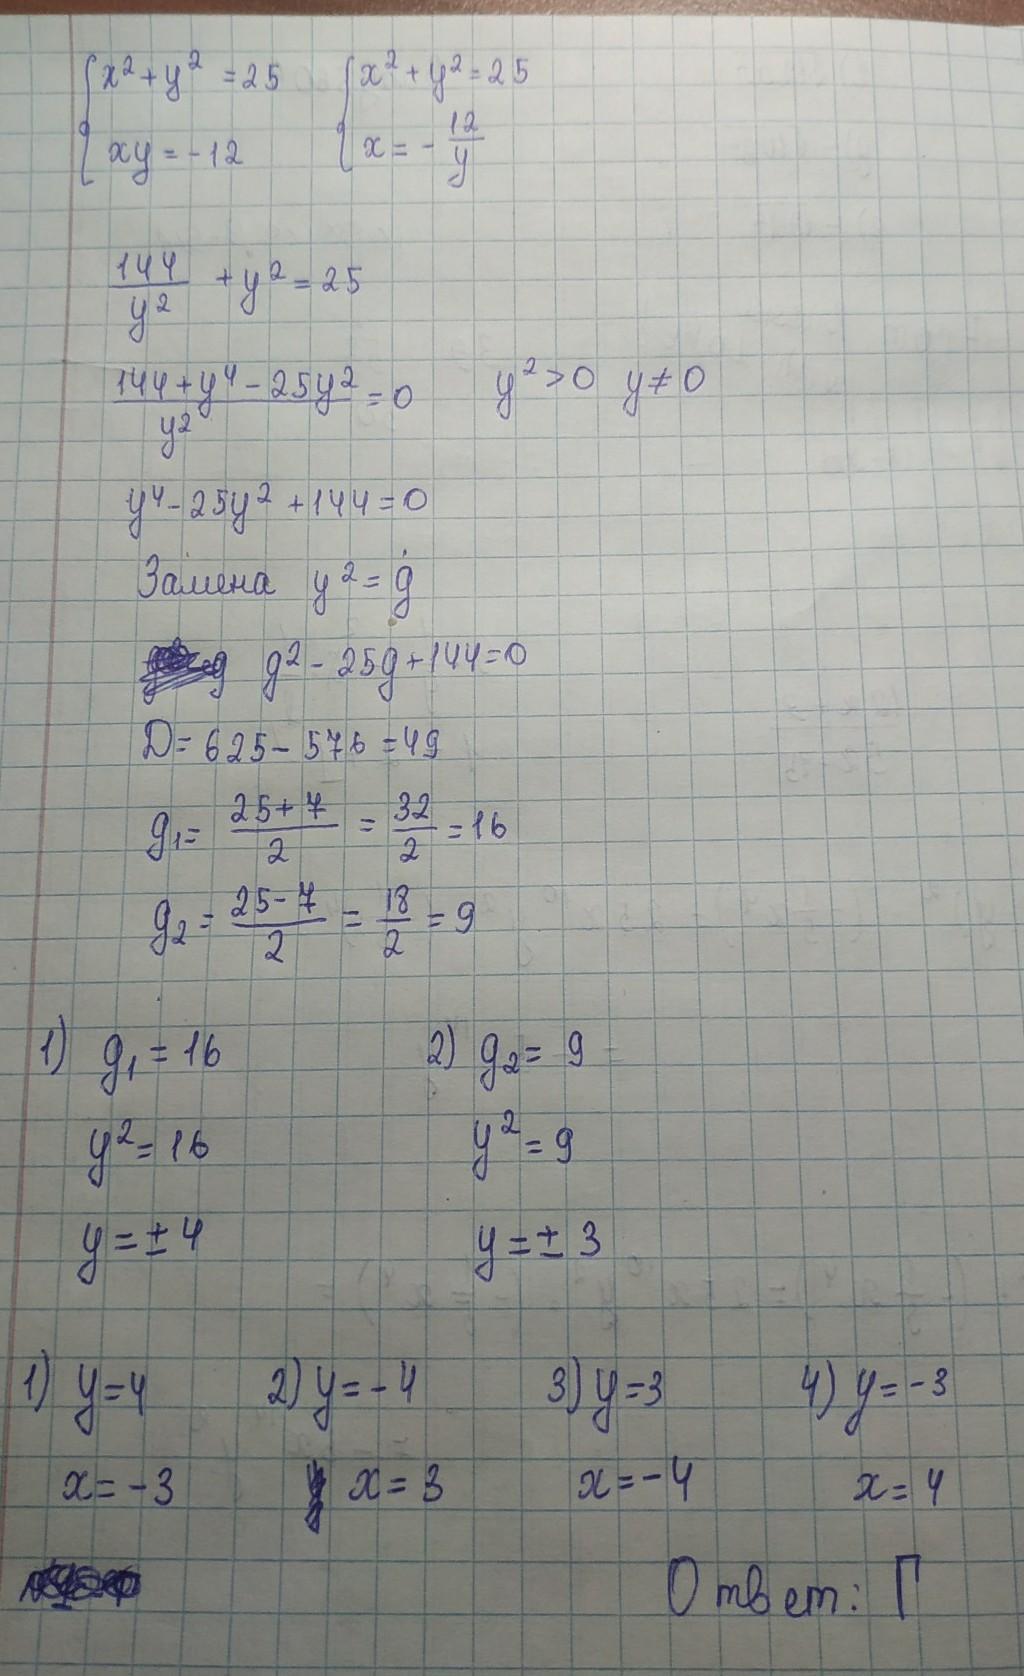 {x² + y² = 25 {x² + y² = 25
{xy = -12 {x = - 12/y
144/y² + y² = 25
(144 + y⁴ - 25y²)/y² = 0 y² > 0 y ≠ 0
y⁴ - 25y² + 144 = 0
Замена y² = g
g g² - 25g + 144 = 0
D = 625 - 576 = 49
g₁ = (25 + 7)/2 = 32/2 = 16
g₂ = (25 - 7)/2 = 18/2 = 9
1) g₁ = 16 2) g₂ = 9
y² = 16 y² = 9
y = ± 4 y = ± 3
1) y = 4 2) y = -4 3) y = 3 4) y = -3
x = -3 x = 3 x = -4 x = 4
Ответ: Г